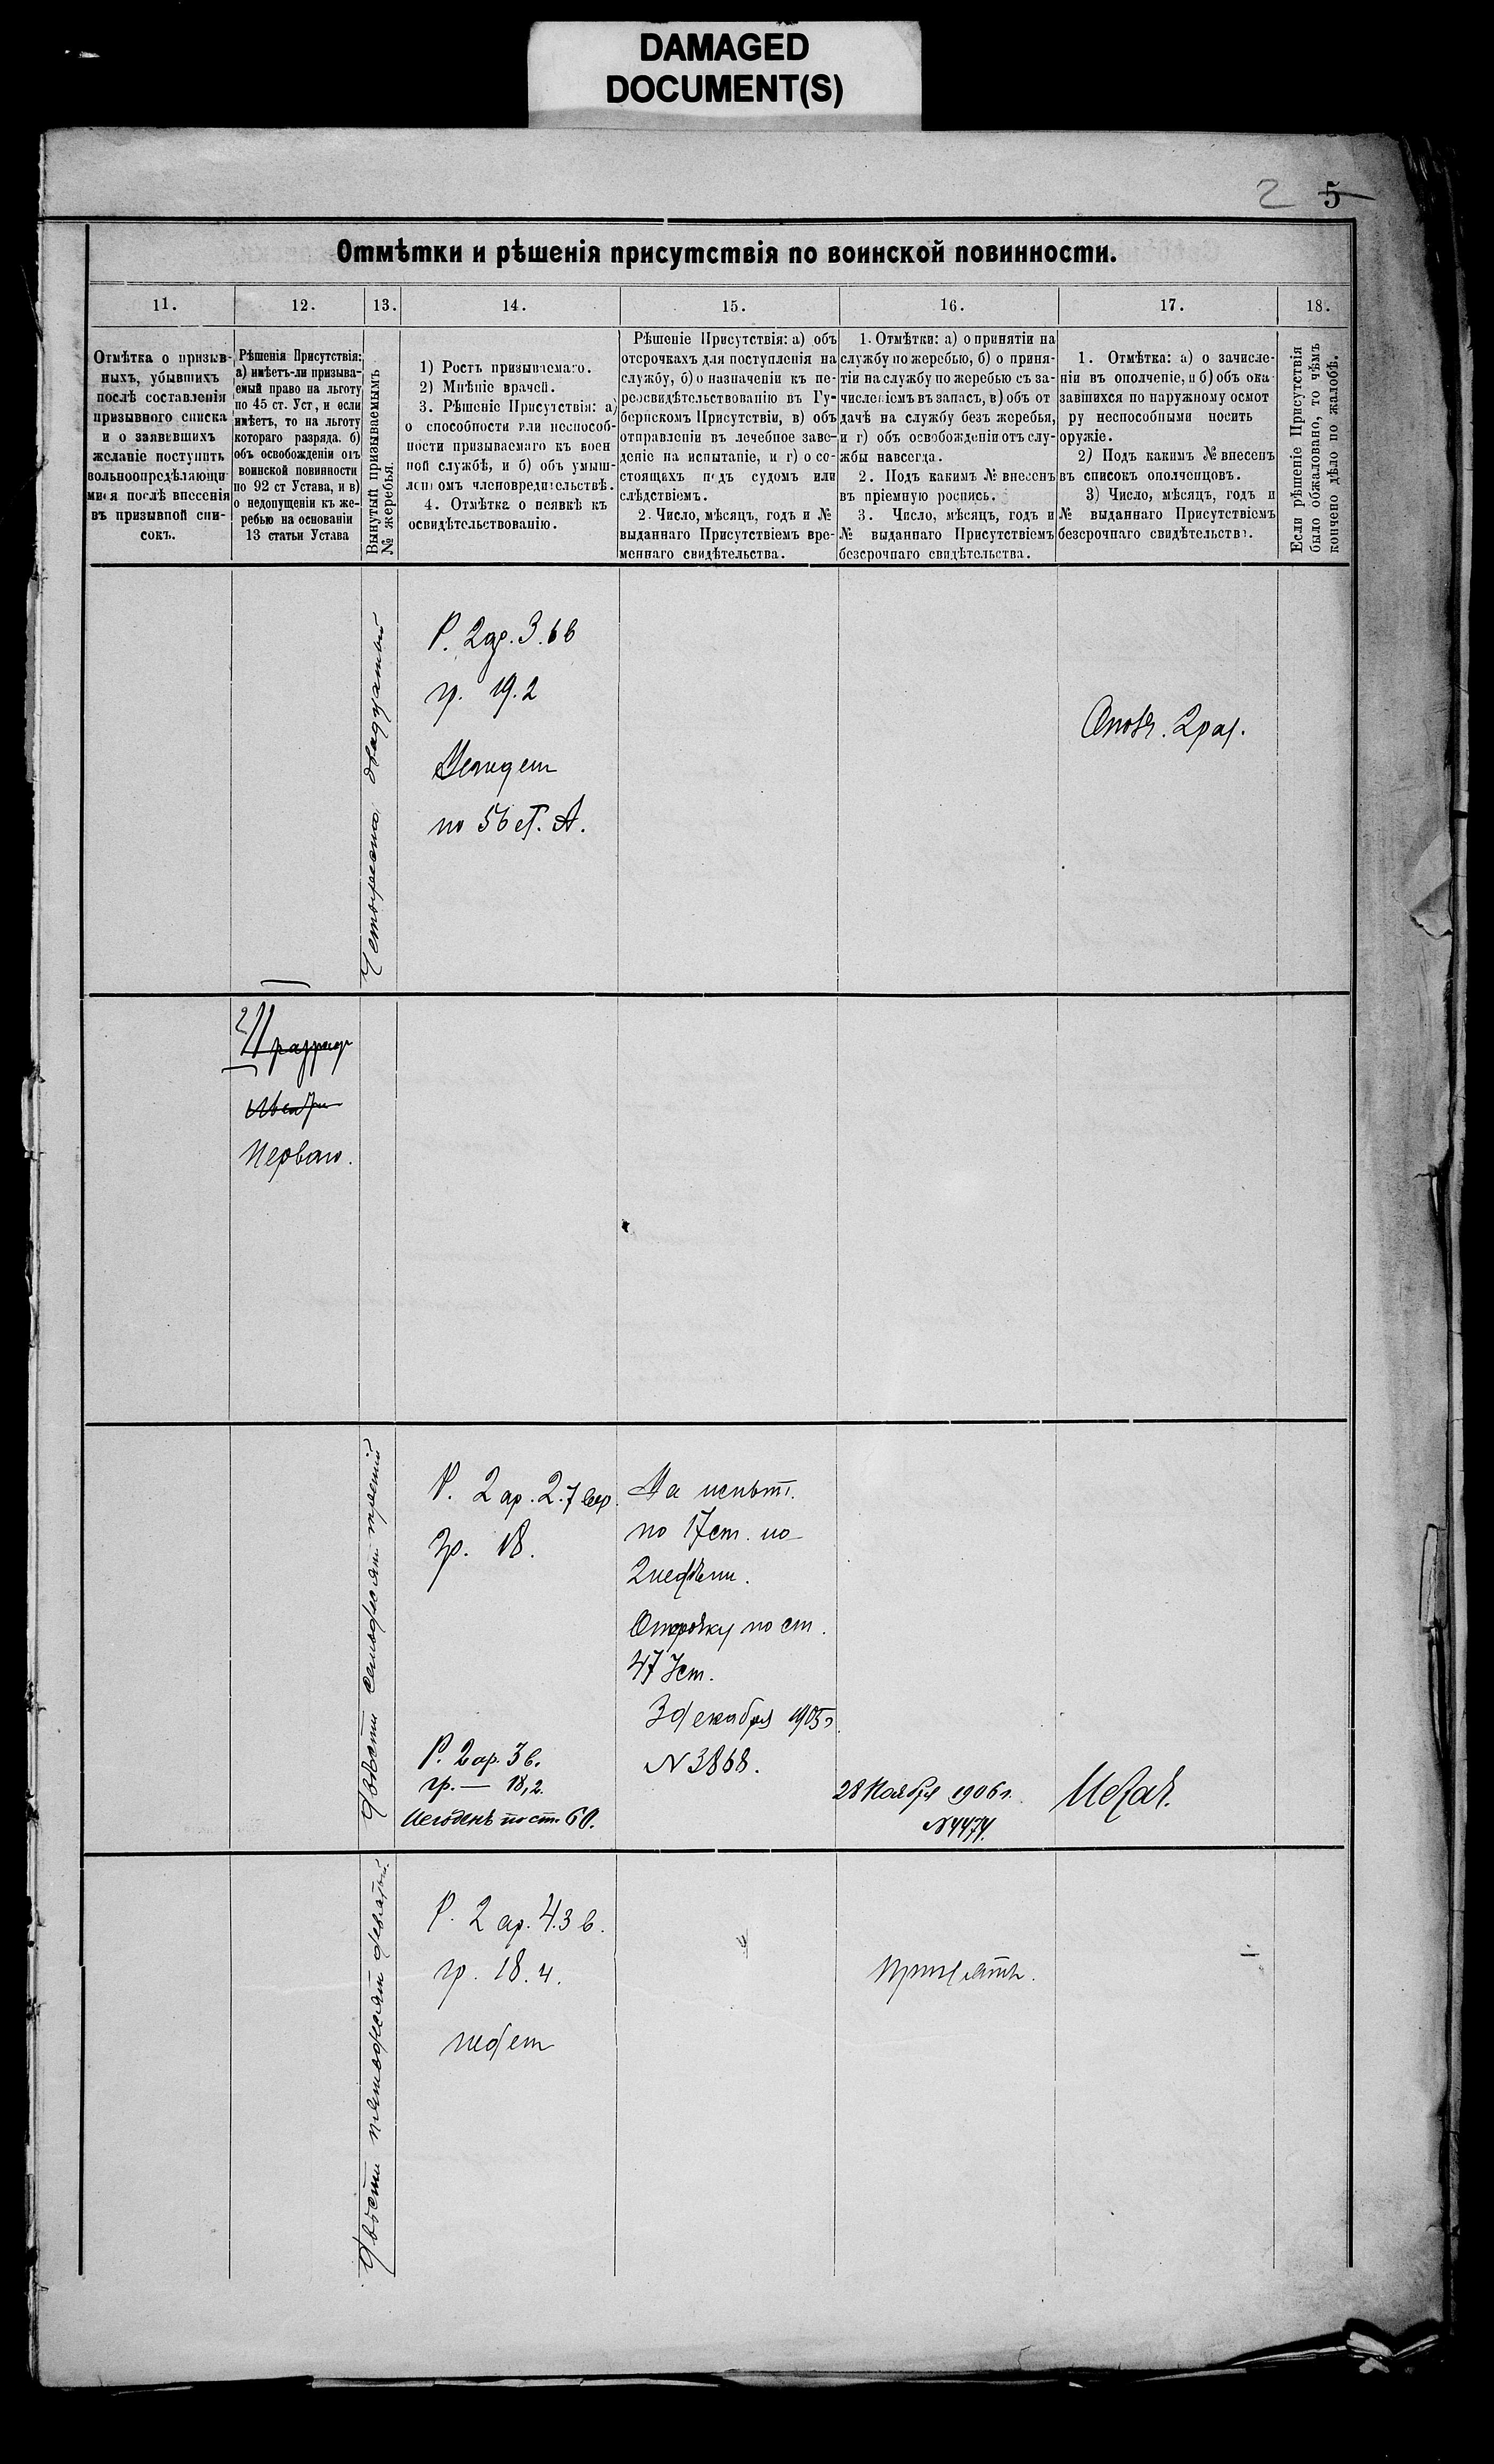 DAMAGED
DOCUMENT(S)
2 5
Отмѣтки и рѣшенія присутствія по воинской повинности.
11. 12. 13. 14. 15. 16. 17. 18.
Отмѣтка о призыв-
ныхъ, убывшихъ
послѣ составленія
призывного списка
и о заявившихъ
желаніе поступить
вольноопредѣляющи
мися послѣ внесенія
въ призывной спи-
сокъ.
Рѣшенія Присутствія:
а) имѣетъ-ли призыва-
емый право на льготу
по 45 ст. Уст, и если
имѣетъ, то на льготу
котораго разряда. б)
объ освобожденіи отъ
воинской повинности
по 92 ст Устава, и в)
о недопущеніи къ же-
ребью на основаніи
13 статьи Устава
Вынутый призываемымъ
№ жеребья.
1) Ростъ призываемаго.
2) Мнѣніе врачей.
3. Рѣшеніе Присутствія: а)
о способности или неспособ-
ности призываемаго къ воен
ной службѣ, и б) объ умыш-
леномъ членовредительствѣ.
4. Отмѣтка о неявкѣ къ
освидѣтельствованію.
Рѣшеніе Присутствія: а) объ
отсрочкахъ для поступленія на
службу, б) о назначеніи къ пе-
реосвидѣтельствованію въ Гу-
бернскомъ Присутствіи, в) объ
отправленіи въ лечебное заве-
деніе на испытаніе, и г) о со-
стоящихъ подъ судомъ или
слѣдствіемъ.
2. Число, мѣсяцъ, годъ и №
выданнаго Присутствіемъ вре-
меннаго свидѣтельства.
1. Отмѣтки: а) о принятіи на
службу по жеребью, б) о приня-
тіи на службу по жеребью съ за-
численіемъ въ запасъ, в) объ от
дачѣ на службу безъ жеребья,
и г) объ освобожденіи отъ слу-
жбы навсегда.
2. Подъ какимъ № внесенъ
въ пріемную роспись.
3. Число, мѣсяцъ, годъ и
№ выданнаго Присутствіемъ
безсрочнаго свидѣтельства.
1. Отмѣтка: а) о зачисле-
ніи въ ополченіе, и б) объ ока
завшихся по наружному осмот
ру неспособными носить
оружіе.
2) Подъ какимъ № внесенъ
въ списокъ ополченцовъ.
3) Число, мѣсяцъ, годъ и
№ выданнаго Присутствіемъ
безсрочнаго свидѣтельства.
Если рѣшеніе Присутствія
было обжаловано, то чѣмъ
кончено дѣло по жалобѣ.
Четыреста двадцатый
Р. 2 ар. 3. 6 в
гр. 19. 2
по 56 ст. А.
Перваго.
Двѣсти семьдесят третій
Р. 2 ар. 2. 7 вер.
гр. 18.
Р. 2 ар. 3 в.
гр. — 18,2.
Негоденъ по ст. 60.
На испыт.
по 17 ст. на
2 недѣли.
Отсрочку по ст.
47 Уст.
3 декабря 1905 г
N 3868.
28 Ноября 1906 г.
N 4474.
Двѣсти пятьдесят девятый.
Р. 2 ар. 4. 3 в.
гр. 18. 4.
Принять.